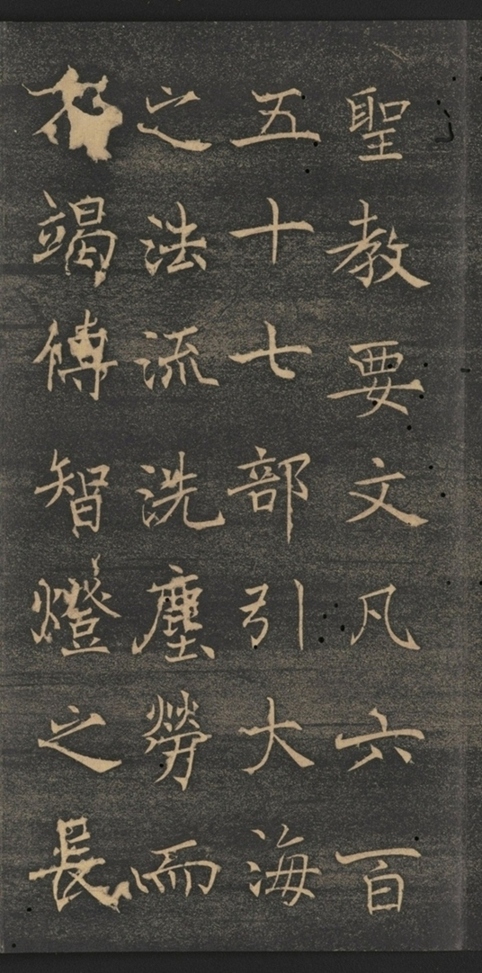 聖教要文凡六百
五十七部引大海
之法流洗塵勞而
不竭傳智燈之長